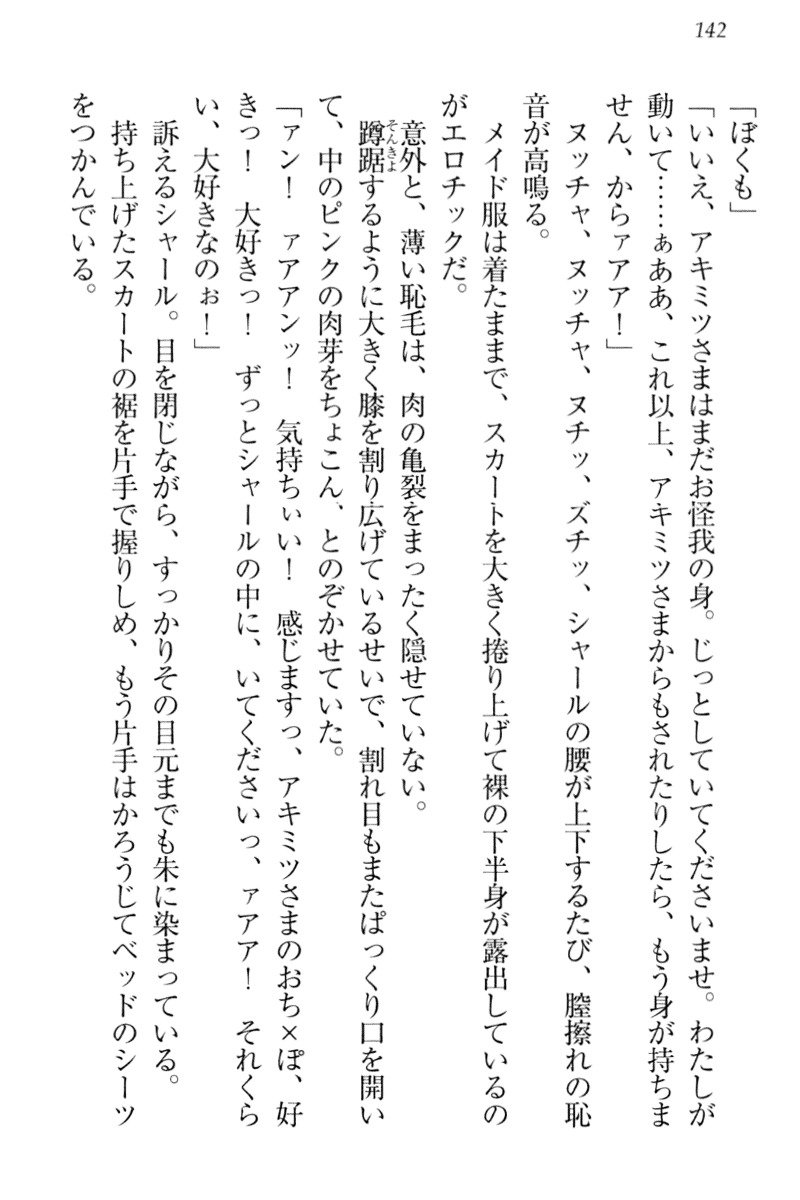 142
「ぼくも」
「いいえ、アキミツさまはまだお怪我の身。じっとしていてくださいませ。わたしが
動いて……ぁああ、これ以上、アキミツさまからもされたりしたら、もう身が持ちま
せん、からァアア！」
ヌッチャ、ヌッチャ、ヌチッ、ズチッ、シャールの腰が上下するたび、膣擦れの恥
音が高鳴る。
メイド服は着たままで、スカートを大きく捲り上げて裸の下半身が露出しているの
がエロチックだ。
意外と、薄い恥毛は、肉の亀裂をまったく隠せていない。
蹲踞するように大きく膝を割り広げているせいで、割れ目もまたぱっくり口を開い
て、中のピンクの肉芽をちょこん、とのぞかせていた。
「ァン！　ァアアンッ！　気持ちぃい！　感じますっ、アキミツさまのおち×ぽ、好
きっ！　大好きっ！　ずっとシャールの中に、いてくださいっ、ァアア！　それくら
い、大好きなのぉ！」
訴えるシャール。目を閉じながら、すっかりその目元までも朱に染まっている。
持ち上げたスカートの裾を片手で握りしめ、もう片手はかろうじてベッドのシーツ
をつかんでいる。
そんきょ